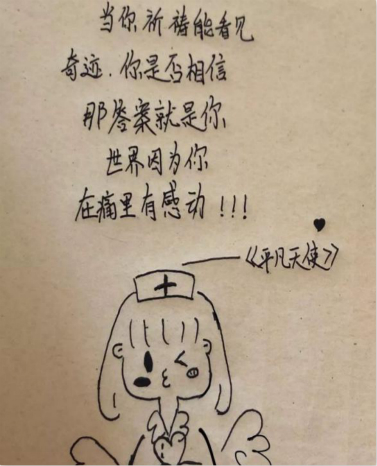 当你祈祷能看见
奇迹.你是否相信
那答案就是你
世界因为你
在痛里有感动!!!
——《平凡天使》